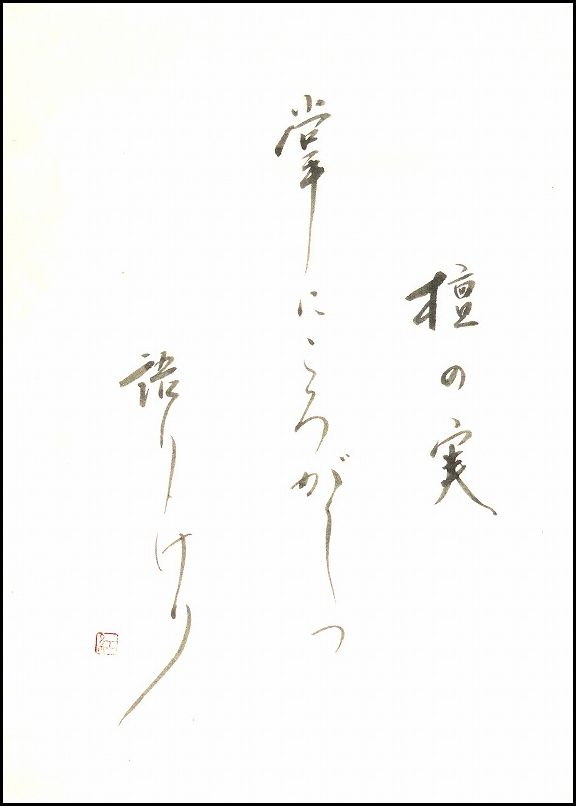 檀の実
掌にころがしつ
語りけり